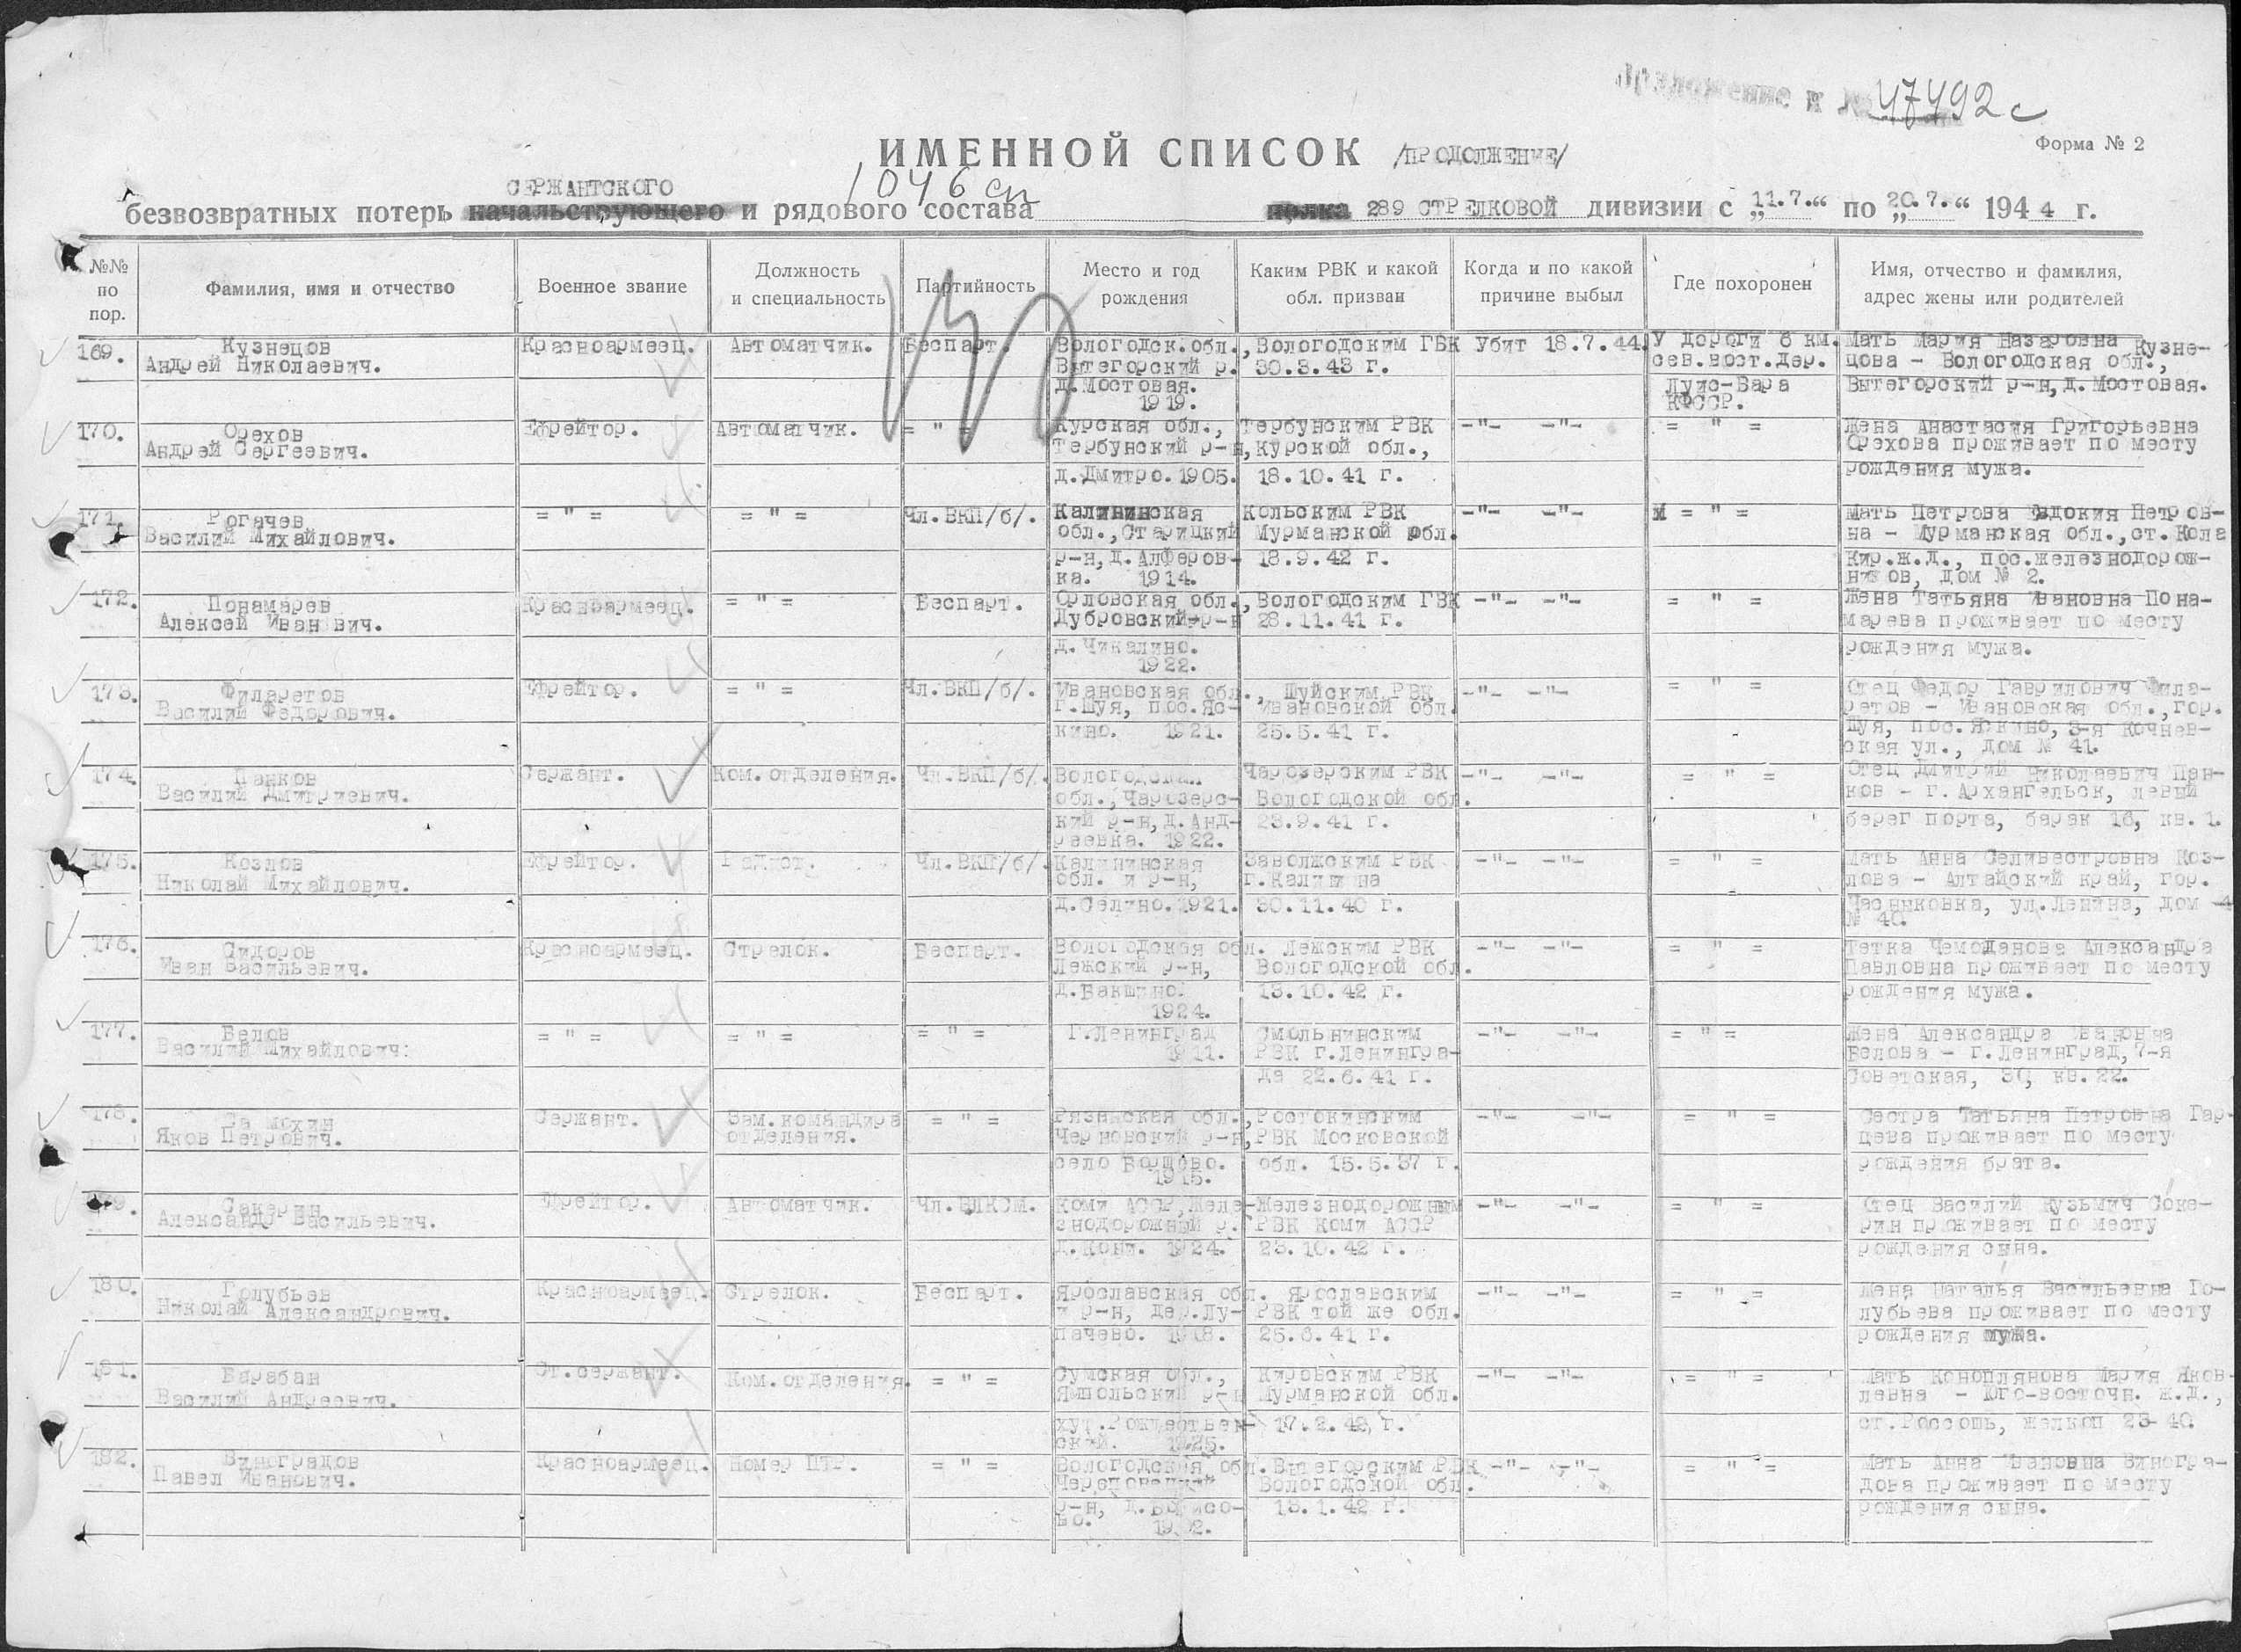 Приложение к № 47492с
Форма № 2
ИМЕННОЙ СПИСОК /ПРОДОЛЖЕНИЕ/
СЕРЖАНТСКОГО 1046 сп
безвозвратных потерь начальствующего и рядового состава полка 289 СТРЕЛКОВОЙ дивизии с „11.7.“ по „20.7.“ 1944 г.
№№ по пор. Фамилия, имя и отчество Военное звание Должность и специальность Партийность Место и год рождения Каким РВК и какой обл. призван Когда и по какой причине выбыл Где похоронен Имя, отчество и фамилия, адрес жены или родителей
169. Кузнецов Красноармеец. Автоматчик. Беспарт. Вологодск.обл., Вологодским ГВК Убит 18.7.44. У дороги 6 км. Мать Мария Назаровна Кузне-
Андрей Николаевич. Вытегорский р. 30.3.43 г. сев.вост.дер. цова - Вологодская обл.,
д.Мостовая. Луис-Вара Вытегорский р-н,д.Мостовая.
1919. КФССР.
170. Орехов Ефрейтор. Автоматчик. = " = Курская обл., Тербунским РВК -"- -"- = " = Жена Анастасия Григорьевна
Андрей Сергеевич. Тербунский р-н, Курской обл., Орехова проживает по месту
д.Дмитро.1905. 18.10.41 г. рождения мужа.
171. Рогачев = " = = " = Чл.ВКП/б/. Калининская Кольским РВК -"- -"- = " = Мать Петрова Евдокия Петров-
Василий Михайлович. обл.,Старицкий Мурманской обл. на - Мурманская обл.,ст.Кола
р-н,д.Алферов- 18.9.42 г. Кир.ж.д., пос.железнодорож-
ка. 1914. ников, дом № 2.
172. Понамарев Красноармеец. = " = Беспарт. Орловская обл., Вологодским ГВК -"- -"- = " = Жена Татьяна Ивановна Пона-
Алексей Иван вич. Дубровский р-н 28.11.41 г. марева проживает по месту
д.Чикалино. рождения мужа.
1922.
173. Филаретов Ефрейтор. = " = Чл.ВКП/б/. Ивановская обл., Шуйским РВК -"- -"- = " = Отец Федор Гаврилович Фила-
Василий Федорович. г.Шуя, пос.Яс- Ивановской обл. ретов - Ивановская обл.,гор.
кино. 1921. 25.5.41 г. Шуя, пос.Яскино, 3-я Кочнев-
ская ул., дом № 41.
174. Панков Сержант. Ком.отделения. Чл.ВКП/б/. Вологодская Чарозерским РВК -"- -"- = " = Отец Дмитрий Николаевич Пан-
Василий Дмитриевич. обл.,Чарозерс- Вологодской обл. ков - г.Архангельск, левый
кий р-н,д.Анд- 23.9.41 г. берег порта, барак 16, кв.1.
реевка. 1922.
175. Козлов Ефрейтор. Радист. Чл.ВКП/б/. Калининская Заволжским РВК -"- -"- = " = Мать Анна Селивестровна Коз-
Николай Михайлович. обл. и р-н, г.Калинина лова - Алтайский край, гор.
д.Селино.1921. 30.11.40 г. ул.Ленина, дом
№ 40.
176. Сидоров Красноармеец. Стрелок. Беспарт. Вологодская обл. Лежским РВК -"- -"- = " = Тетка Чемоданова Александра
Иван Васильевич. Лежский р-н, Вологодской обл. Павловна проживает по месту
д.Бакшино. 13.10.42 г. рождения мужа.
1924.
177. Белов = " = = " = = " = г.Ленинград Смольнинским -"- -"- = " = Жена Александра Ивановна
Василий Михайлович: 1911. РВК г.Ленингра- Белова - г.Ленинград, 7-я
да 22.6.41 г. Советская, 30, кв.22.
178. Самохин Сержант. Зам.командира = " = Рязанская обл., Ростокинским -"- -"- = " = Сестра Татьяна Петровна Гар-
Яков Петрович. отделения. р-н, РВК Московской цева проживает по месту
село Борщово. обл. 15.5.37 г. рождения брата.
1915.
179. Сакерин Ефрейтор. Автоматчик. Чл.ВЛКСМ. Коми АССР,Желе- Железнодорожным -"- -"- = " = Отец Василий Кузьмич Соке-
Александр Васильевич. знодорожный р. РВК Коми АССР рин проживает по месту
д.Кони. 1924. 23.10.42 г. рождения сына.
180. Голубьев Красноармеец. Стрелок. Беспарт. Ярославская обл. Ярославским -"- -"- = " = Жена Наталья Васильевна Го-
Николай Александрович. и р-н, дер.Лу- РВК той же обл. лубьева проживает по месту
пачево. 25.6.41 г. рождения мужа.
181. Барабан Ст.сержант. Ком.отделения. = " = Сумская обл., Кировским РВК -"- -"- = " = Мать Коноплянова Мария Яков-
Василий Андреевич. Ямпольский р-н Мурманской обл. левна - Юго-восточн. ж.д.,
хут.Рождествен- 17.2.42 г. ст.Россошь, желкоп 23-40.
ский.
182. Виноградов Красноармеец. Номер ПТР. = " = Вологодская обл. Вытегорским РВК -"- -"- = " = Мать Анна Ивановна Виногра-
Павел Иванович. Череповецкий Вологодской обл. дова проживает по месту
р-н, д.Борисо- 13.1.42 г. рождения сына.
во.